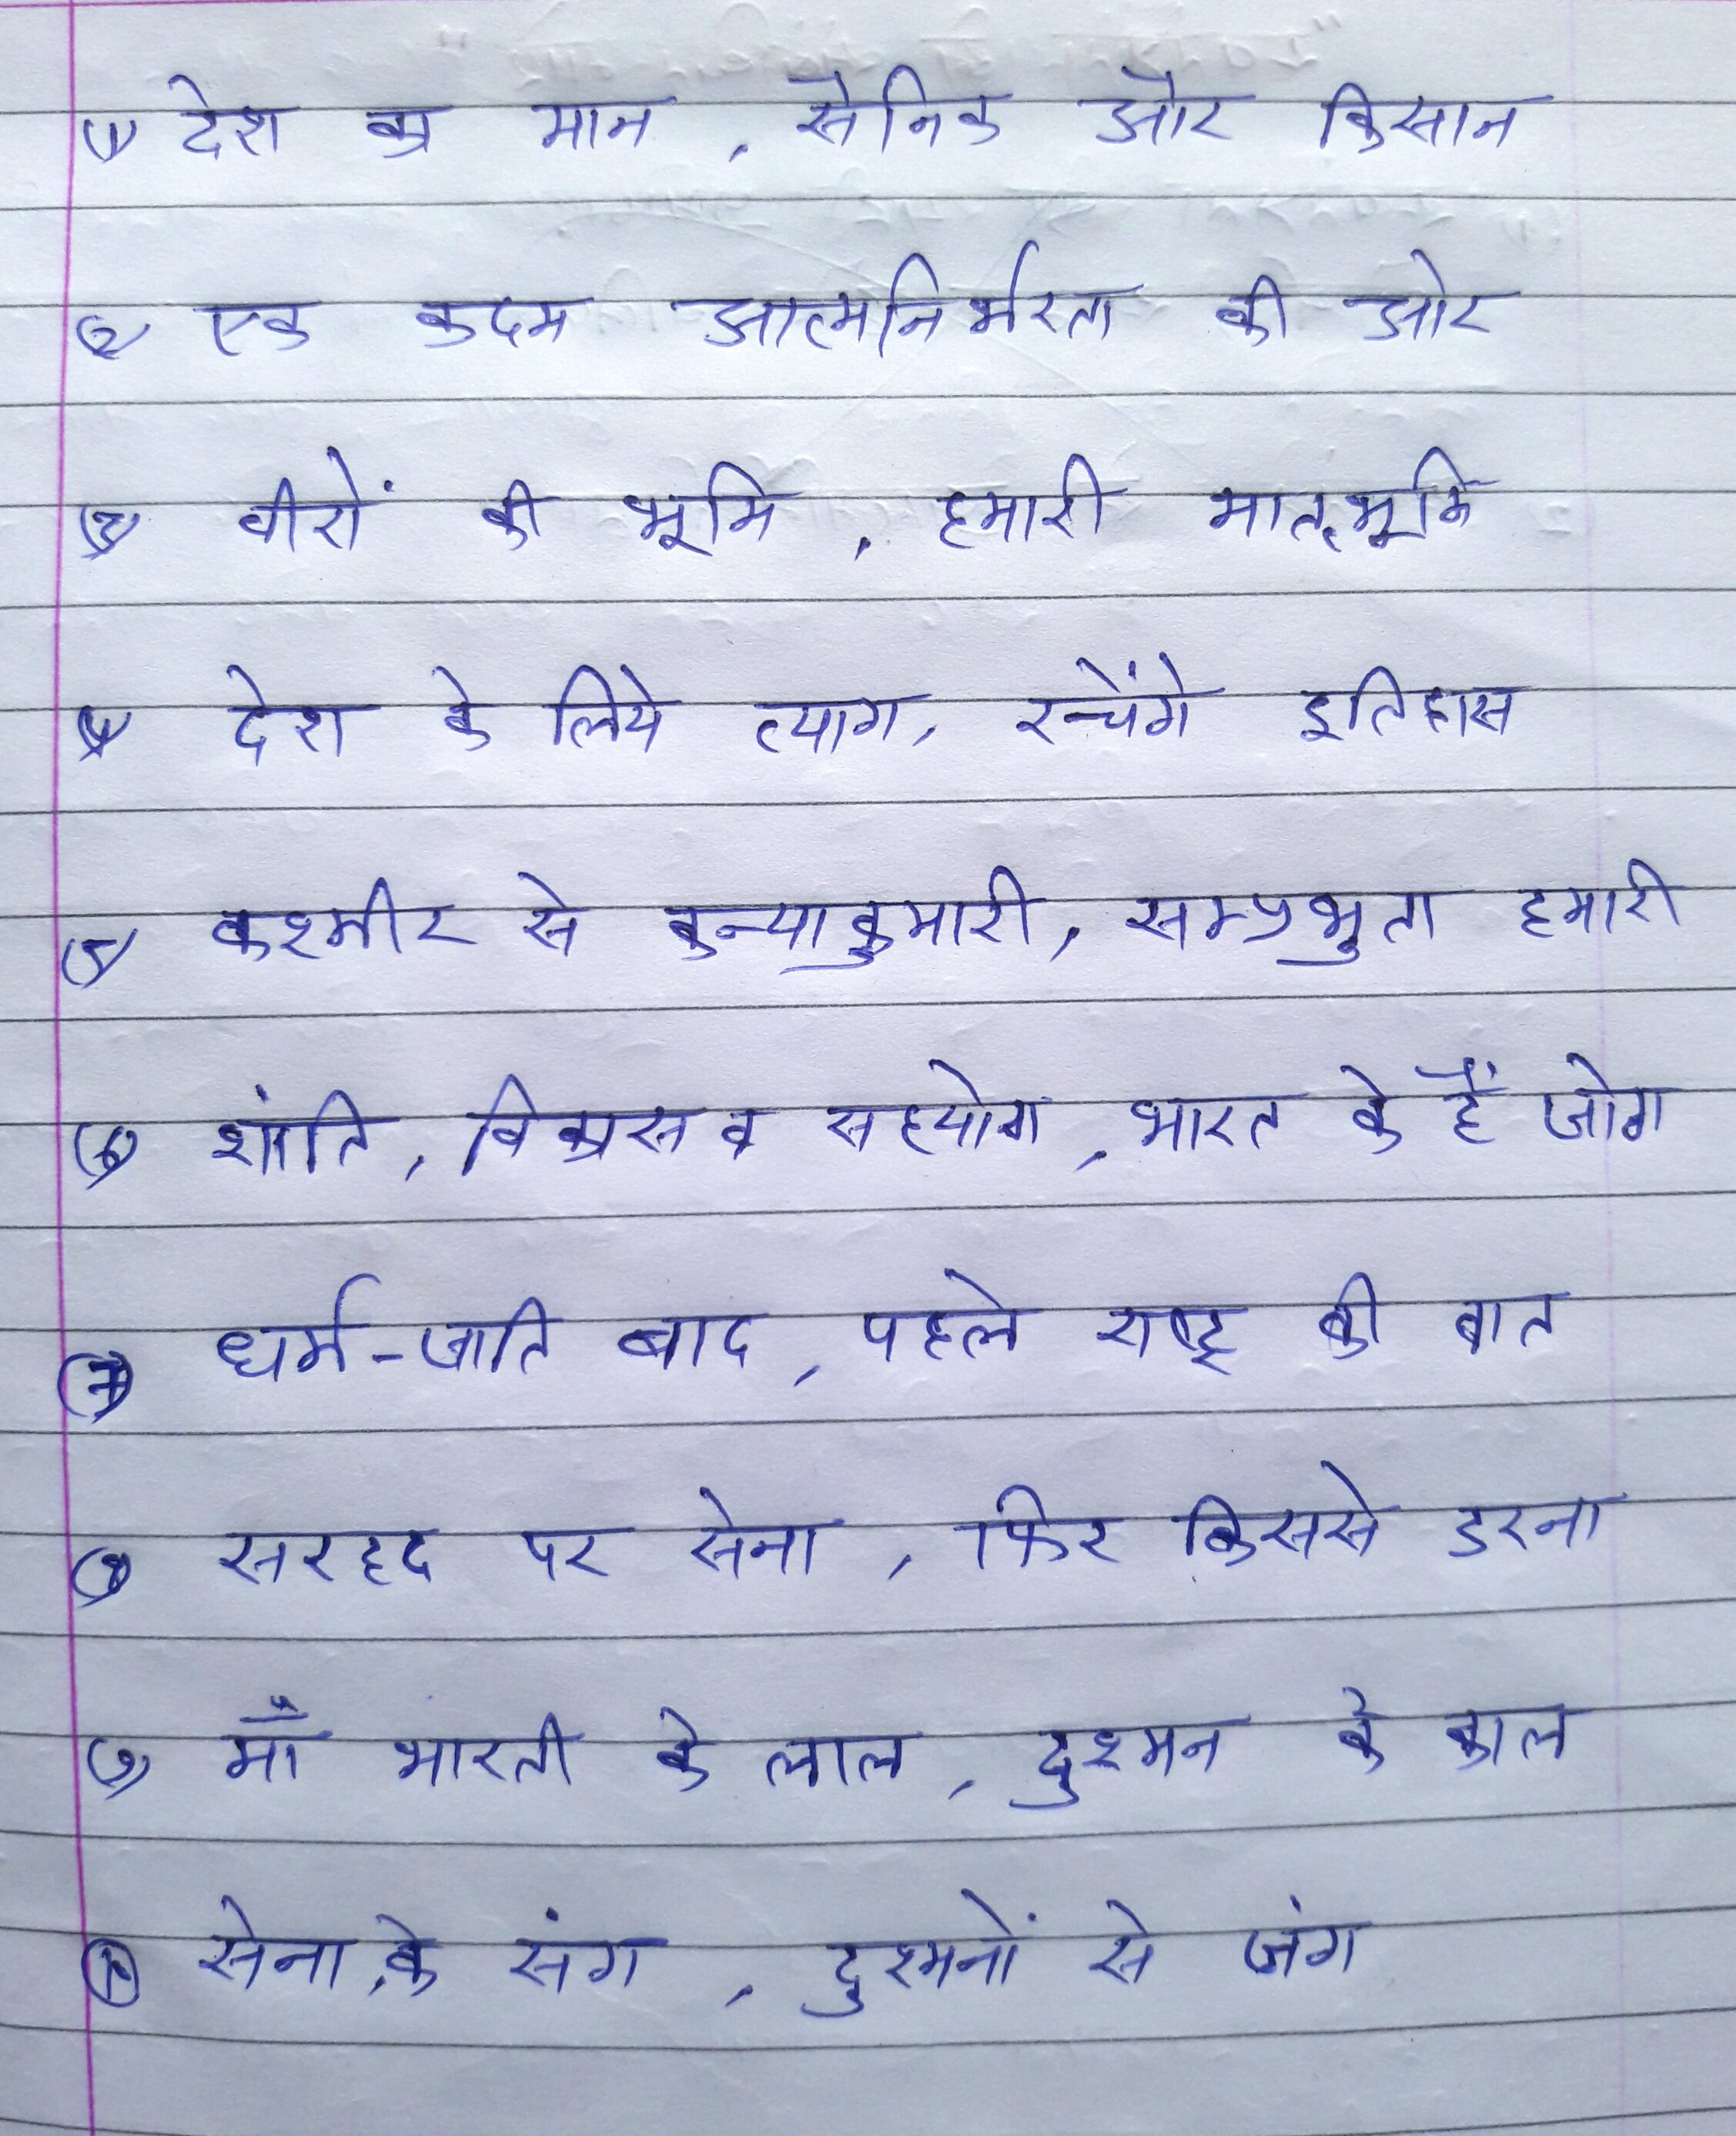 (1) देश का मान, सैनिक और किसान
(2) एक कदम आत्मनिर्भरता की ओर
(3) वीरों की भूमि, हमारी मातृभूमि
(4) देश के लिये त्याग, रचेंगे इतिहास
(5) कश्मीर से कन्याकुमारी, सम्प्रभुता हमारी
(6) शांति, विकास व सहयोग, भारत के हैं जोग
(7) धर्म-जाति बाद, पहले राष्ट्र की बात
(8) सरहद पर सेना, फिर किससे डरना
(9) माँ भारती के लाल, दुश्मन के काल
(10) सेना के संग, दुश्मनों से जंग